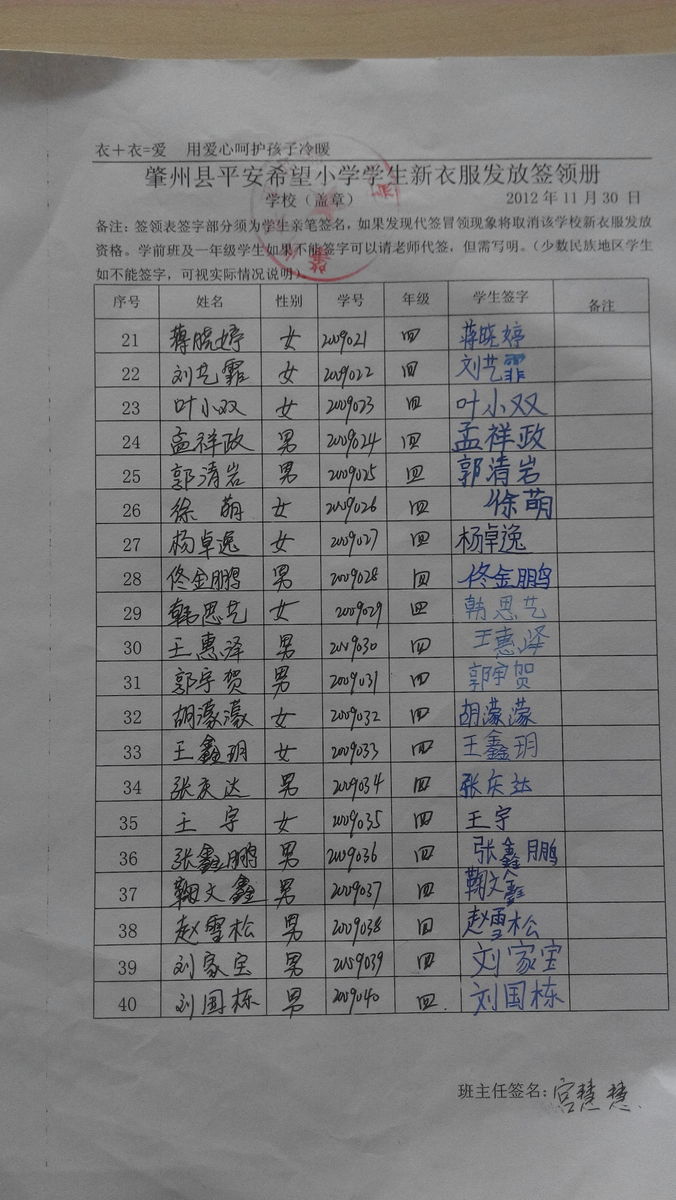 衣+衣=爱 用爱心呵护孩子冷暖
肇州县平安希望小学学生新衣服发放签领册
学校（盖章） 2012 年 11 月 30 日
备注：签领表签字部分须为学生亲笔签名，如果发现代签冒领现象将取消该学校新衣服发放
资格。学前班及一年级学生如果不能签字可以请老师代签，但需写明。（少数民族地区学生
如不能签字，可视实际情况说明）。
序号 姓名 性别 学号 年级 学生签字 备注
21 蒋晓婷 女 2009021 四 蒋晓婷
22 刘艺霏 女 2009022 四 刘艺霏
23 叶小双 女 2009023 四 叶小双
24 孟祥政 男 2009024 四 孟祥政
25 郭清岩 男 2009025 四 郭清岩
26 徐萌 女 2009026 四 徐萌
27 杨卓逸 女 2009027 四 杨卓逸
28 佟金鹏 男 2009028 四 佟金鹏
29 韩思艺 女 2009029 四 韩思艺
30 王惠泽 男 2009030 四 王惠泽
31 郭宇贺 男 2009031 四 郭宇贺
32 胡濛濛 女 2009032 四 胡濛濛
33 王鑫玥 女 2009033 四 王鑫玥
34 张庆达 男 2009034 四 张庆达
35 王宇 女 2009035 四 王宇
36 张鑫鹏 男 2009036 四 张鑫鹏
37 鞠文鑫 男 2009037 四 鞠文鑫
38 赵雪松 男 2009038 四 赵雪松
39 刘家宝 男 2009039 四 刘家宝
40 刘国栋 男 2009040 四 刘国栋
班主任签名：宫慧慧